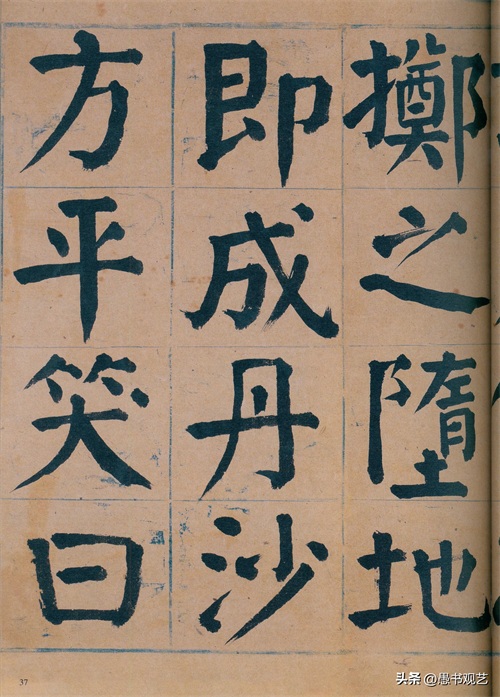 擲之墮地
即成丹沙
方平笑曰
37
头条@愚书观艺